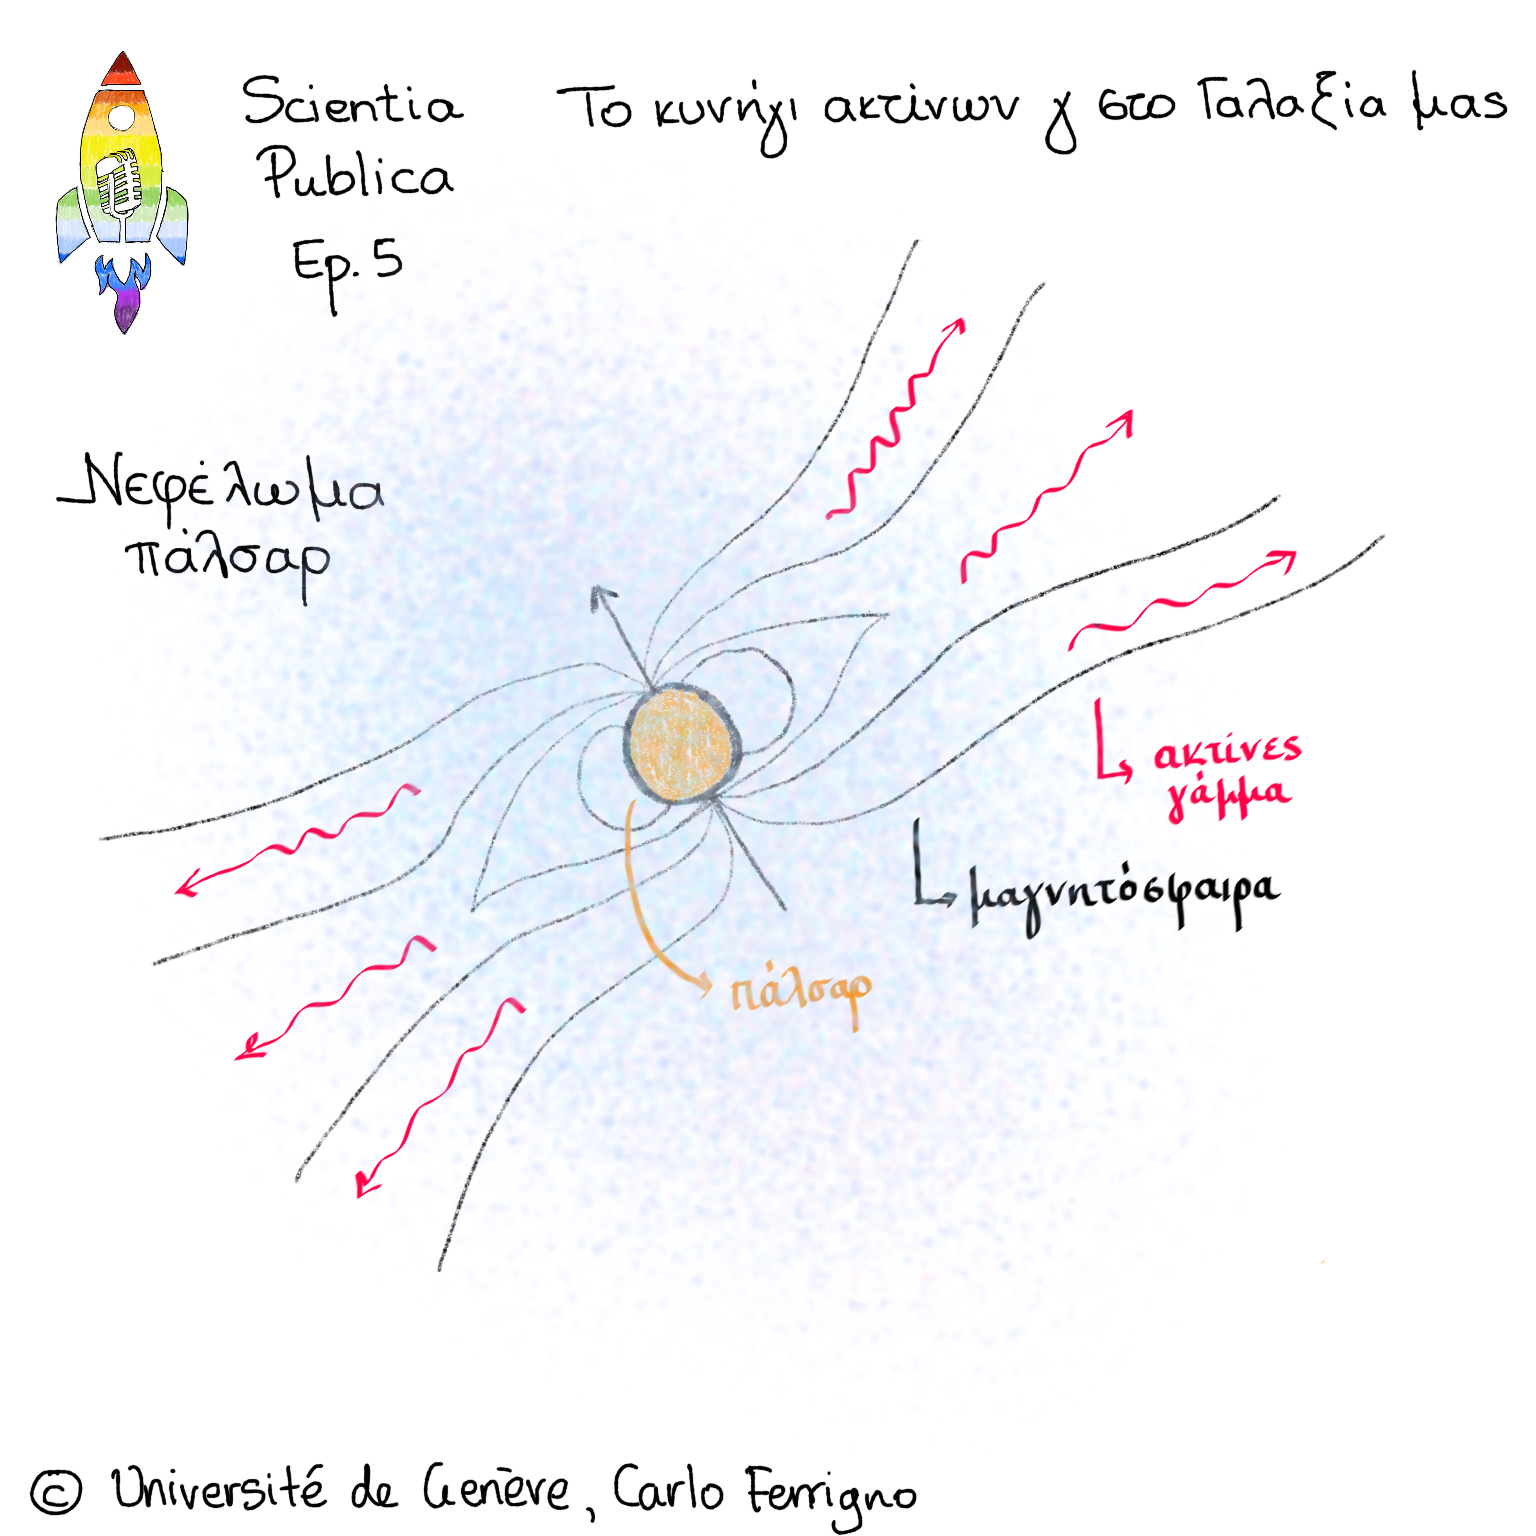 Scientia
Publica
Ep. 5
Το κυνήγι ακτίνων γ στο Γαλαξία μας
Νεφέλωμα
πάλσαρ
ακτίνες
γάμμα
μαγνητόσφαιρα
πάλσαρ
© Université de Genève, Carlo Ferrigno